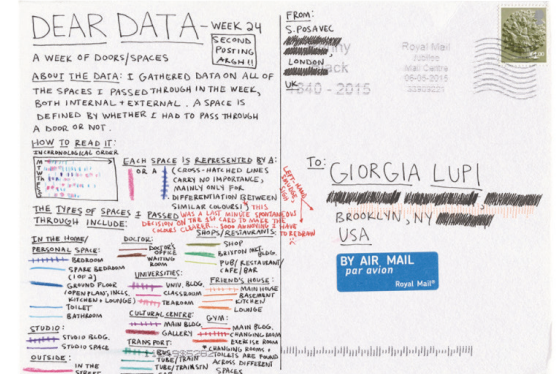 DEAR DATA - WEEK 24
SECOND
POSTING
ARGH!!
A WEEK OF DOORS/SPACES
ABOUT THE DATA: I GATHERED DATA ON ALL OF
THE SPACES I PASSED THROUGH IN THE WEEK,
BOTH INTERNAL + EXTERNAL. A SPACE IS
DEFINED BY WHETHER I HAD TO PASS THROUGH
A DOOR OR NOT.
HOW TO READ IT:
IN CHRONOLOGICAL ORDER
M
T
W
T
F
S
S
EACH SPACE IS REPRESENTED BY A:
OR A
(CROSS-HATCHED LINES
CARRY NO IMPORTANCE,
MAINLY ONLY FOR
DIFFERENTIATION BETWEEN
SIMILAR COLOURS)
THIS
WAS A LAST MINUTE SPONTANEOUS
DECISION ON THE 1ST CARD TO MAKE THE
COLOURS CLEARER. SOOO ANNOYING I HAVE
TO REDRAW
THE TYPES OF SPACES I PASSED
THROUGH INCLUDE:
IN THE HOME/
PERSONAL SPACE:
BEDROOM
SPARE BEDROOM
(1 OF 2)
GROUND FLOOR
(OPEN PLAN, INCLS.
KITCHEN + LOUNGE)
TOILET
BATHROOM
STUDIO:
STUDIO BLDG.
STUDIO SPACE
OUTSIDE:
IN THE
DOCTOR:
DOCTOR'S
OFFICE
WAITING
ROOM
UNIVERSITIES:
UNIV. BLDG.
CLASSROOM
TEAROOM
CULTURAL CENTRE:
MAIN BLDG.
GALLERY
TRANSPORT:
BUS
TUBE/TRAIN
TUBE/TRAIN STN
SHOPS/RESTAURANTS:
SHOP
BRIXTON MKT.
BLDG.
PUB/RESTAURANT/
CAFE/BAR
FRIEND'S HOUSE:
MAIN HOUSE
BASEMENT
KITCHEN
LOUNGE
GYM:
MAIN BLDG.
CHANGING ROOM
EXERCISE ROOM
* CHANGING ROOMS +
TOILETS ARE FOUND
ACROSS DIFFERENT
SPACES
FROM:
S. POSAVEC
LONDON
UK
1840 - 2015
Royal Mail
Jubilee
Mail Centre
TO:
GIORGIA LUPI
BROOKLYN, NY
USA
BY AIR MAIL
par avion
Royal Mail